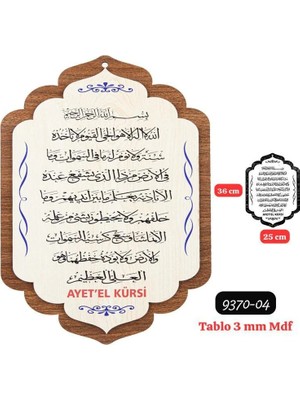 بسم الله الرحمن الرحيم
الله لا اله الا هو الحي القيوم لا تأخذه
سنة ولا نوم له ما في السموات وما
في الارض من ذا الذي يشفع عنده
الا باذنه يعلم ما بين ايديهم وما
خلفهم ولا يحيطون بشيء من علمه
الا بما شاء وسع كرسيه السموات
والارض ولا يؤده حفظهما وهو
العلي العظيم
AYET'EL KÜRSİ
36 cm
25 cm
9370-04
Tablo 3 mm Mdf